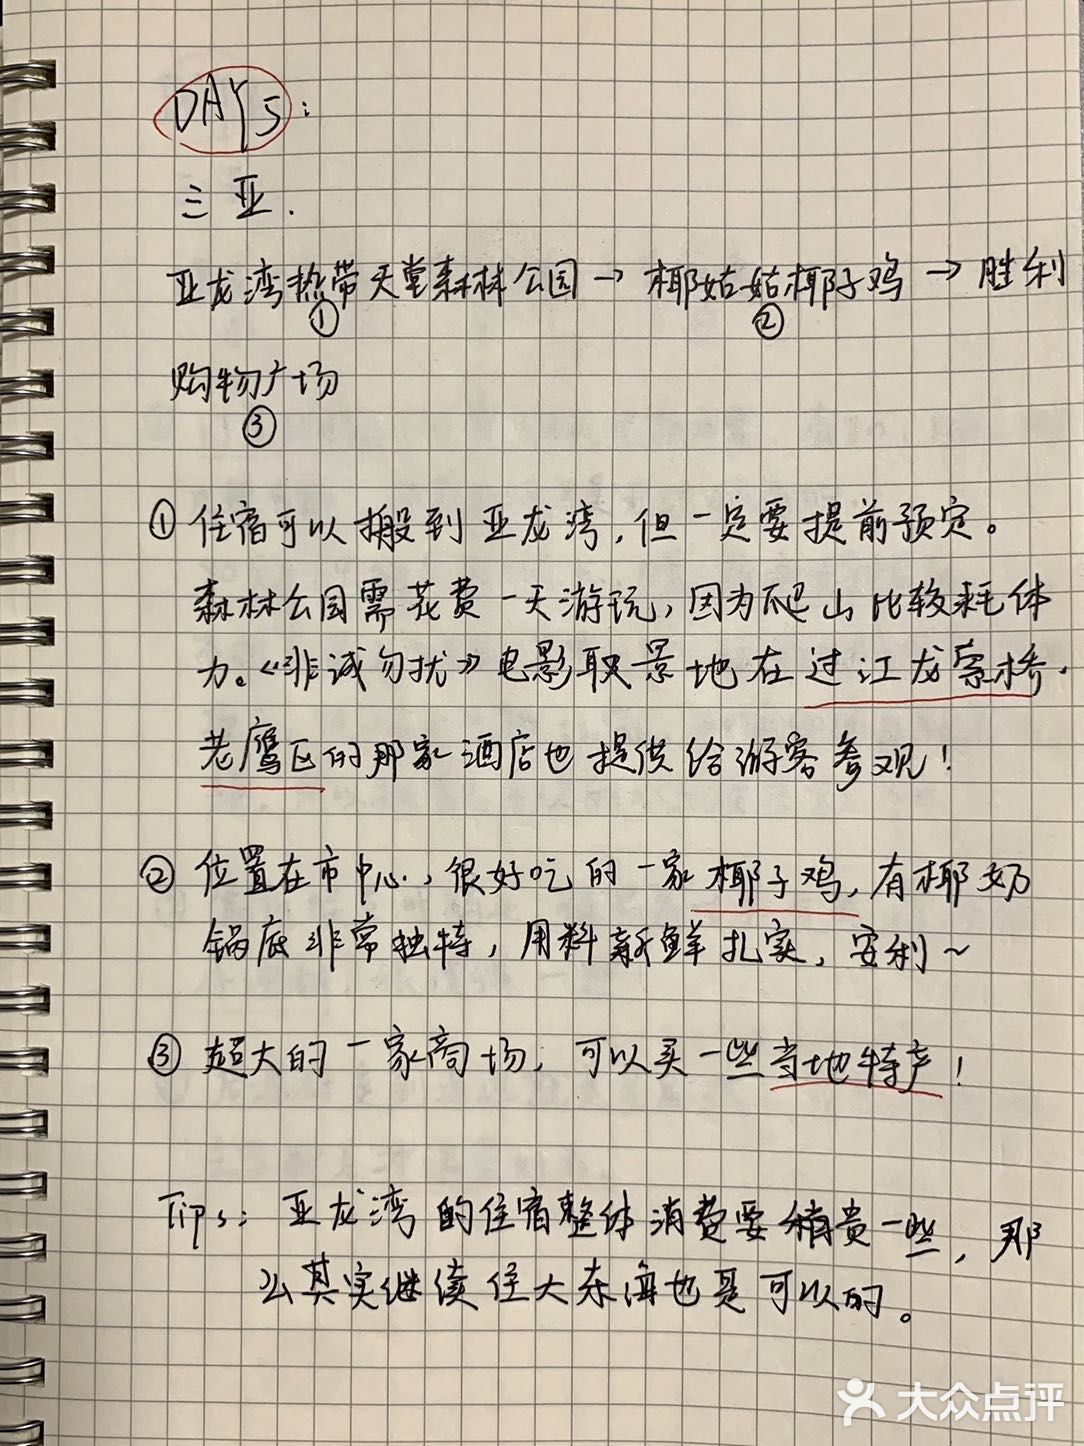 DAY5:
三亚.
亚龙湾热带天堂森林公园→椰姑姑椰子鸡→胜利
① ②
购物广场
③
①住宿可以搬到亚龙湾,但一定要提前预定。
森林公园需花费一天游玩,因为爬山比较耗体
力。《非诚勿扰》电影取景地在过江龙索桥.
老鹰区的那家酒店也提供给游客参观!
②位置在市中心,很好吃的一家椰子鸡,有椰奶
锅底非常独特,用料新鲜扎实,安利~
③超大的一家商场,可以买一些当地特产!
Tips:亚龙湾的住宿整体消费要稍贵一些,那
么其实继续住大东海也是可以的。
大众点评